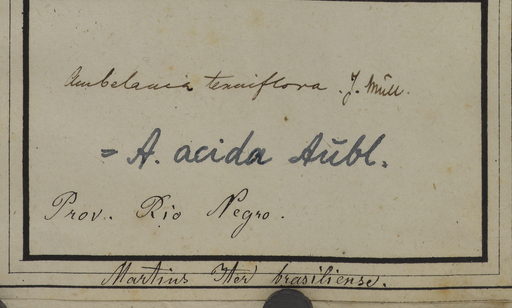 Ambelania tenuiflora. J. Müll.
= A. acida Aubl.
Prov. Rio Negro.
Martius Iter brasiliense.